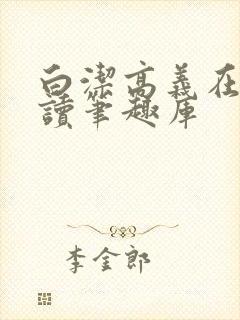 白潔高義在
讀筆趣库
李金郎